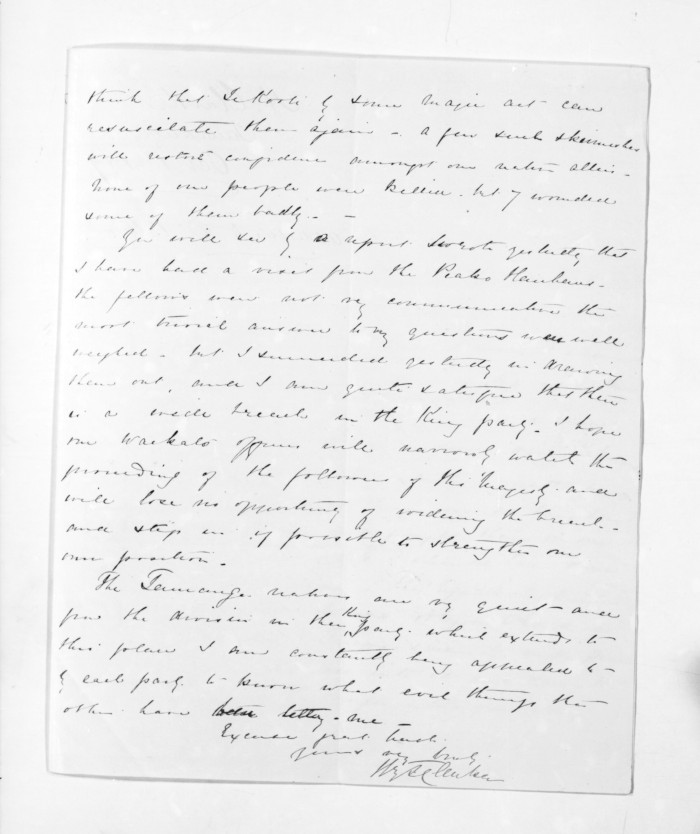 think that Te Kooti by some magic art can
resuscitate them again - a few such skirmishes
will restore confidence amongst our native allies -
None of our people were killed - but 7 wounded
some of them badly - -
You will see by a report I wrote yesterday that
I have had a visit from the Piako Hauhaus -
the fellows were not very communicative the
most trivial answer to my questions was well
weighed - but I succeeded yesterday in drawing
them out, and I am quite satisfied that there
is a wide breach in the King party - I hope
our Waikato officers will narrowly watch the
proceeding of the followers of His Majesty and
will lose no opportunity of widening the breach -
and step in if possible to strengthen our
own position -
The Tauranga natives are very quiet and
from the division in the King party which extends to
this place I am constantly being appealed to -
by each party to know what evil things the
other have been telling me -
Excuse great haste
yours very truly
Hy T Clarke